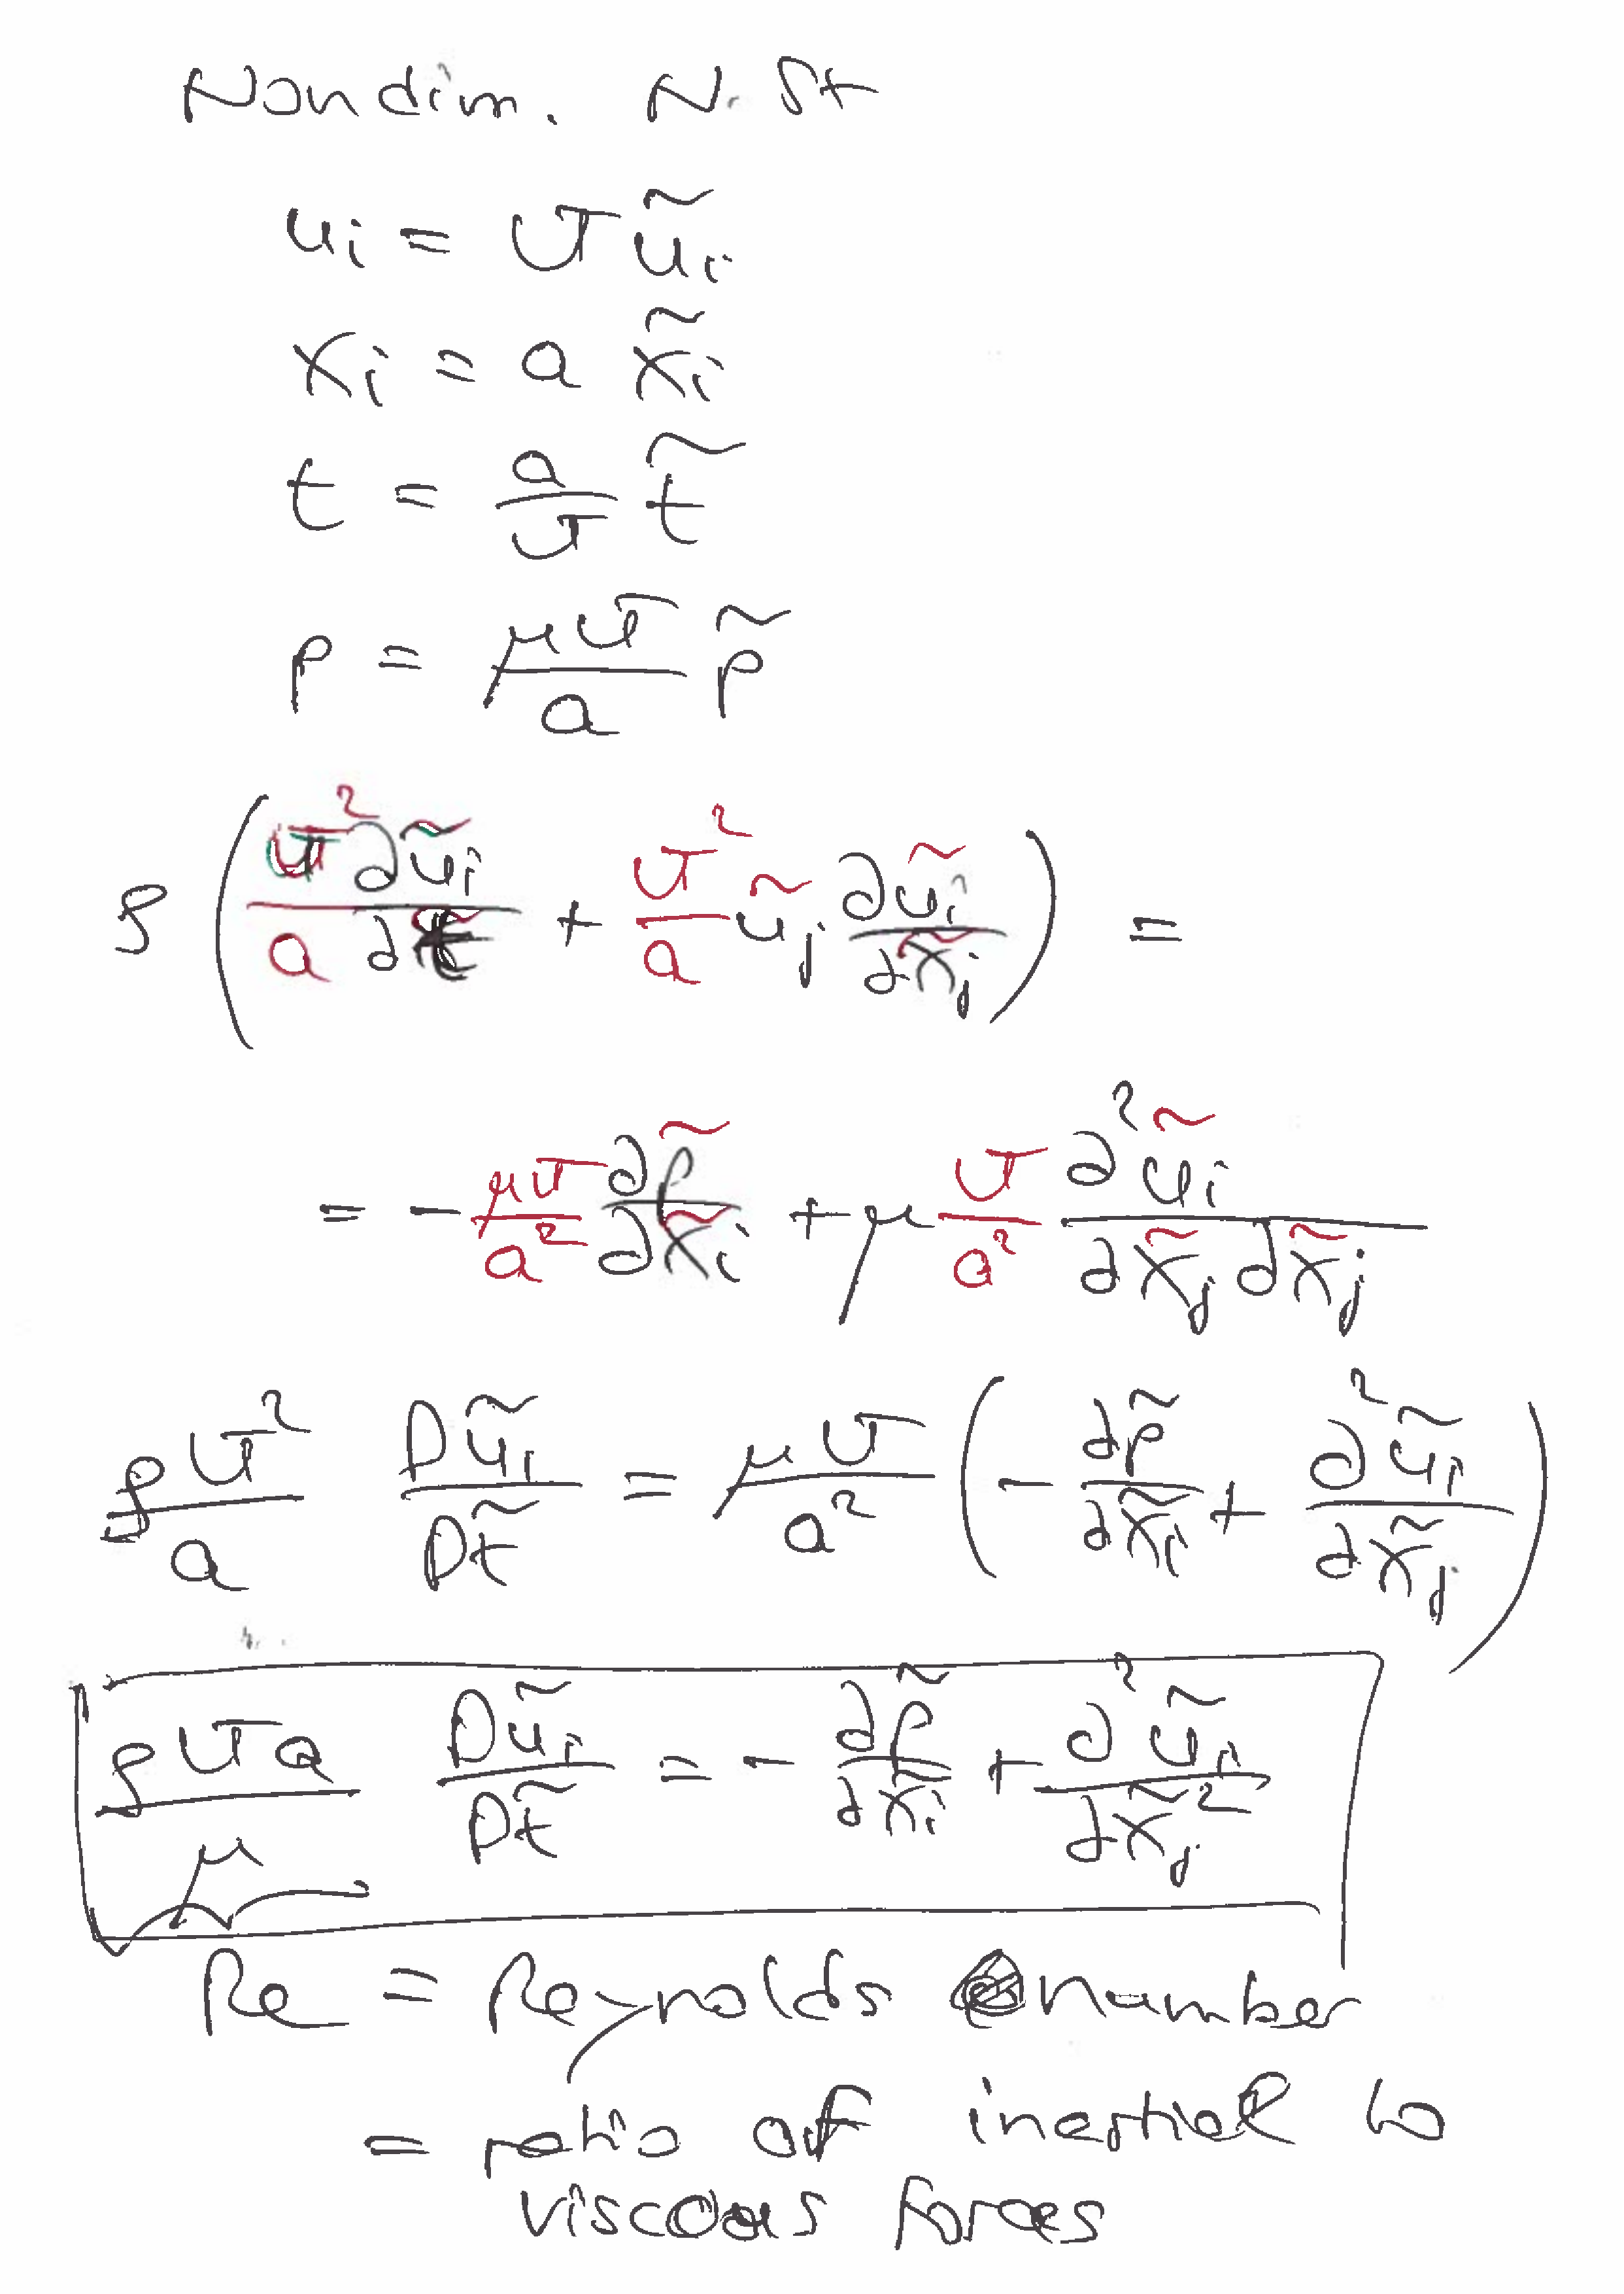 Nondim. N. St
uᵢ = U ũᵢ
xᵢ = a x̃ᵢ
t = a/U t̃
p = μU/a p̃
ρ ( U²/a ∂ũᵢ/∂t̃ + U²/a ũⱼ ∂ũᵢ/∂x̃ⱼ ) =
= - μU/a² ∂p̃/∂x̃ᵢ + μ U/a² ∂²ũᵢ/∂x̃ⱼ∂x̃ⱼ
ρU²/a Dũᵢ/Dt̃ = μU/a² ( - ∂p̃/∂x̃ᵢ + ∂²ũᵢ/∂x̃ⱼ )
ρUa/μ Dũᵢ/Dt̃ = - ∂p̃/∂x̃ᵢ + ∂²ũᵢ/∂x̃ⱼ²
Re = Reynolds number
= ratio of inertial to
viscous forces